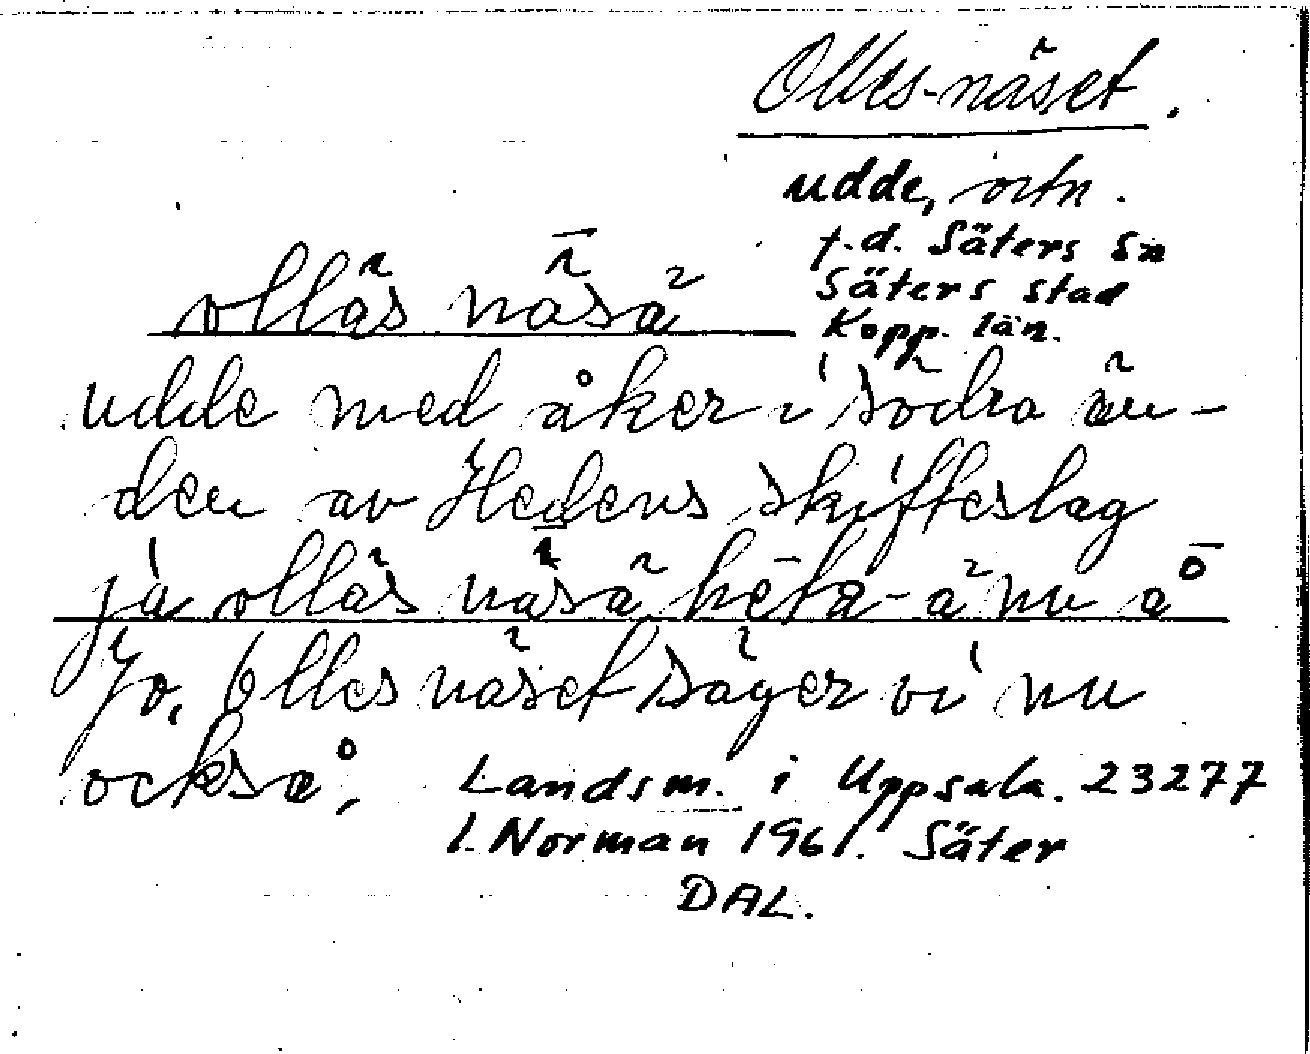 Olles-näset.
udde, ortn.
f.d. Säters Sn
Säters stad
Kopp. län.
olläs nǟsä
udde med åker i södra än-
den av Hedens skifteslag
ja olläs nǟsä hēta-ä nu å̄
Jo, Olles näset säger vi nu
också,
Landsm. i Uppsala. 23277
I. Norman 1961. Säter
DAL.